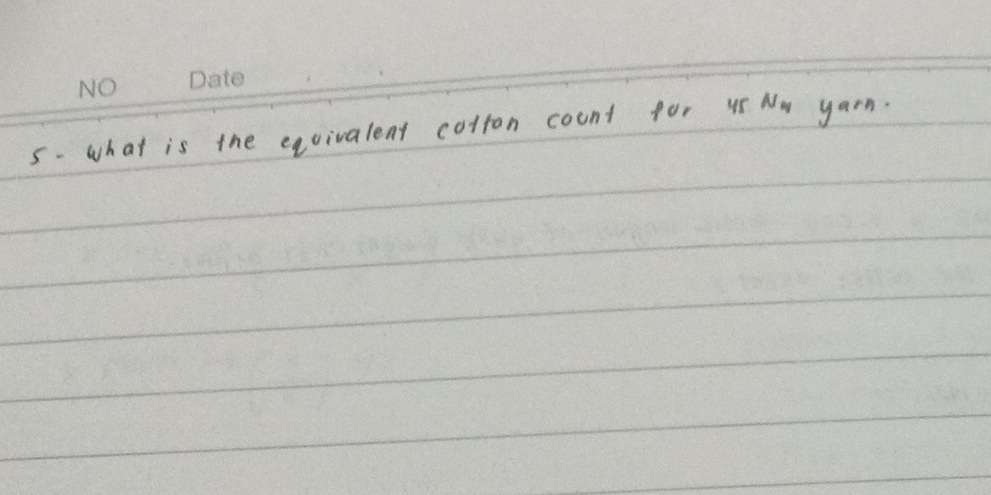 NO Date
5- what is the equivalent cotton count for 45 Nm yarn.